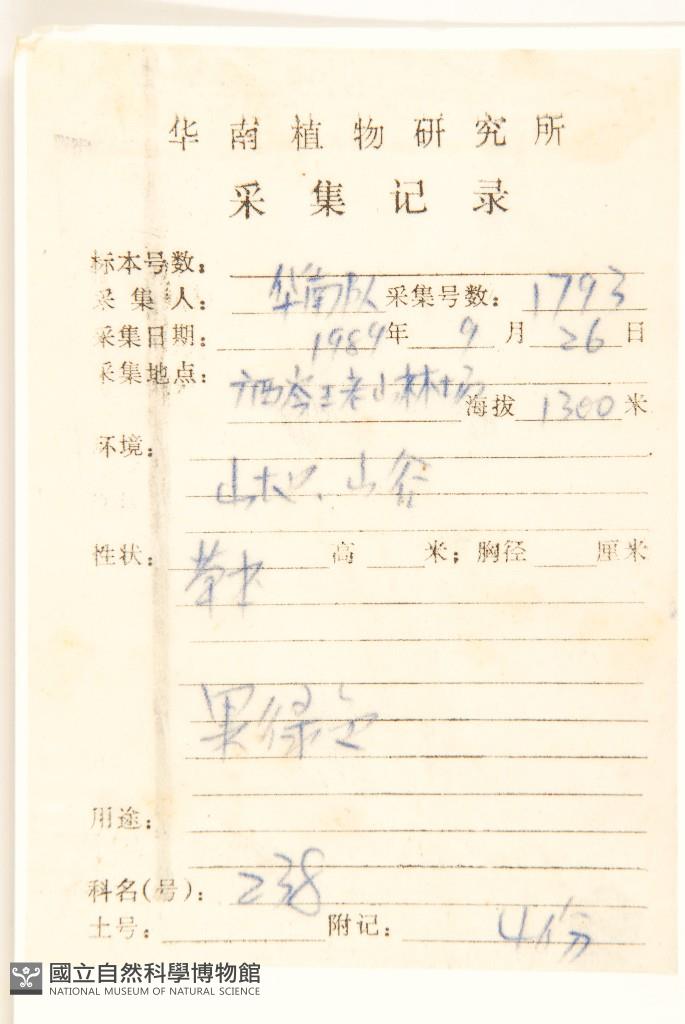 华南植物研究所
采集记录
标本号数：
采集人：华南队 采集号数：1793
采集日期：1989年9月26日
采集地点：广西岑王老山林场
海拔1300米
环境：
山地、山谷
性状： 高 米；胸径 厘米
草本
果绿色
用途：
科名(号)：238
土号： 附记：4份
國立自然科學博物館
NATIONAL MUSEUM OF NATURAL SCIENCE